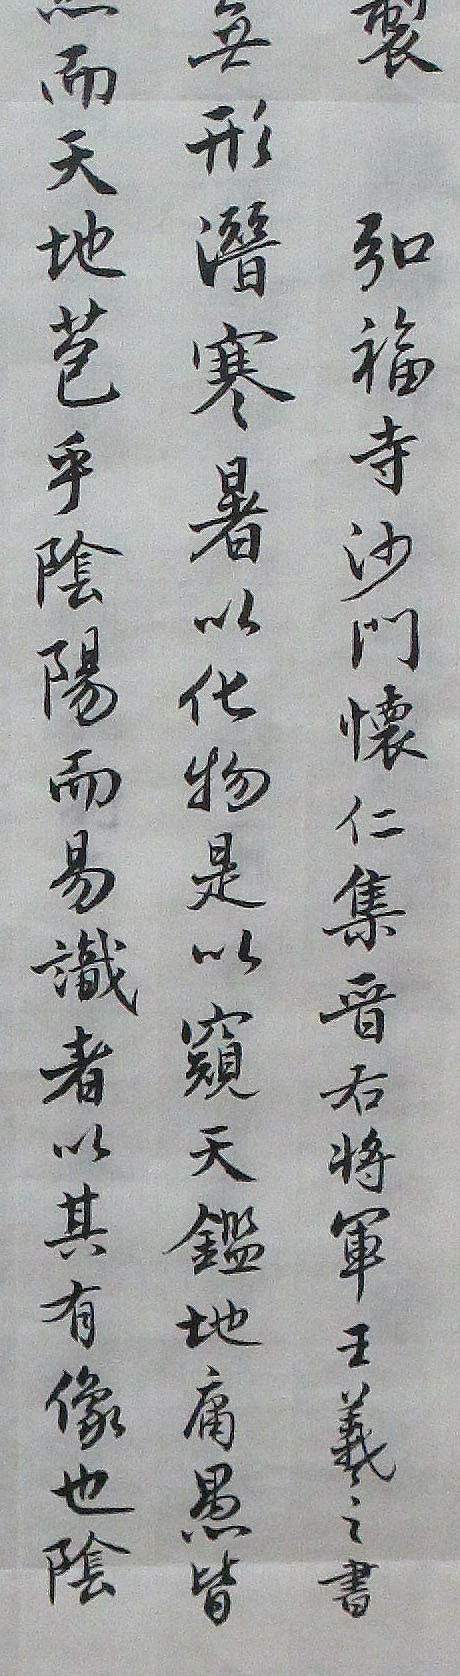 製 弘福寺沙門懷仁集晉右將軍王羲之書
無形潛寒暑以化物是以窺天鑑地庸愚皆
然而天地苞乎陰陽而易識者以其有像也陰